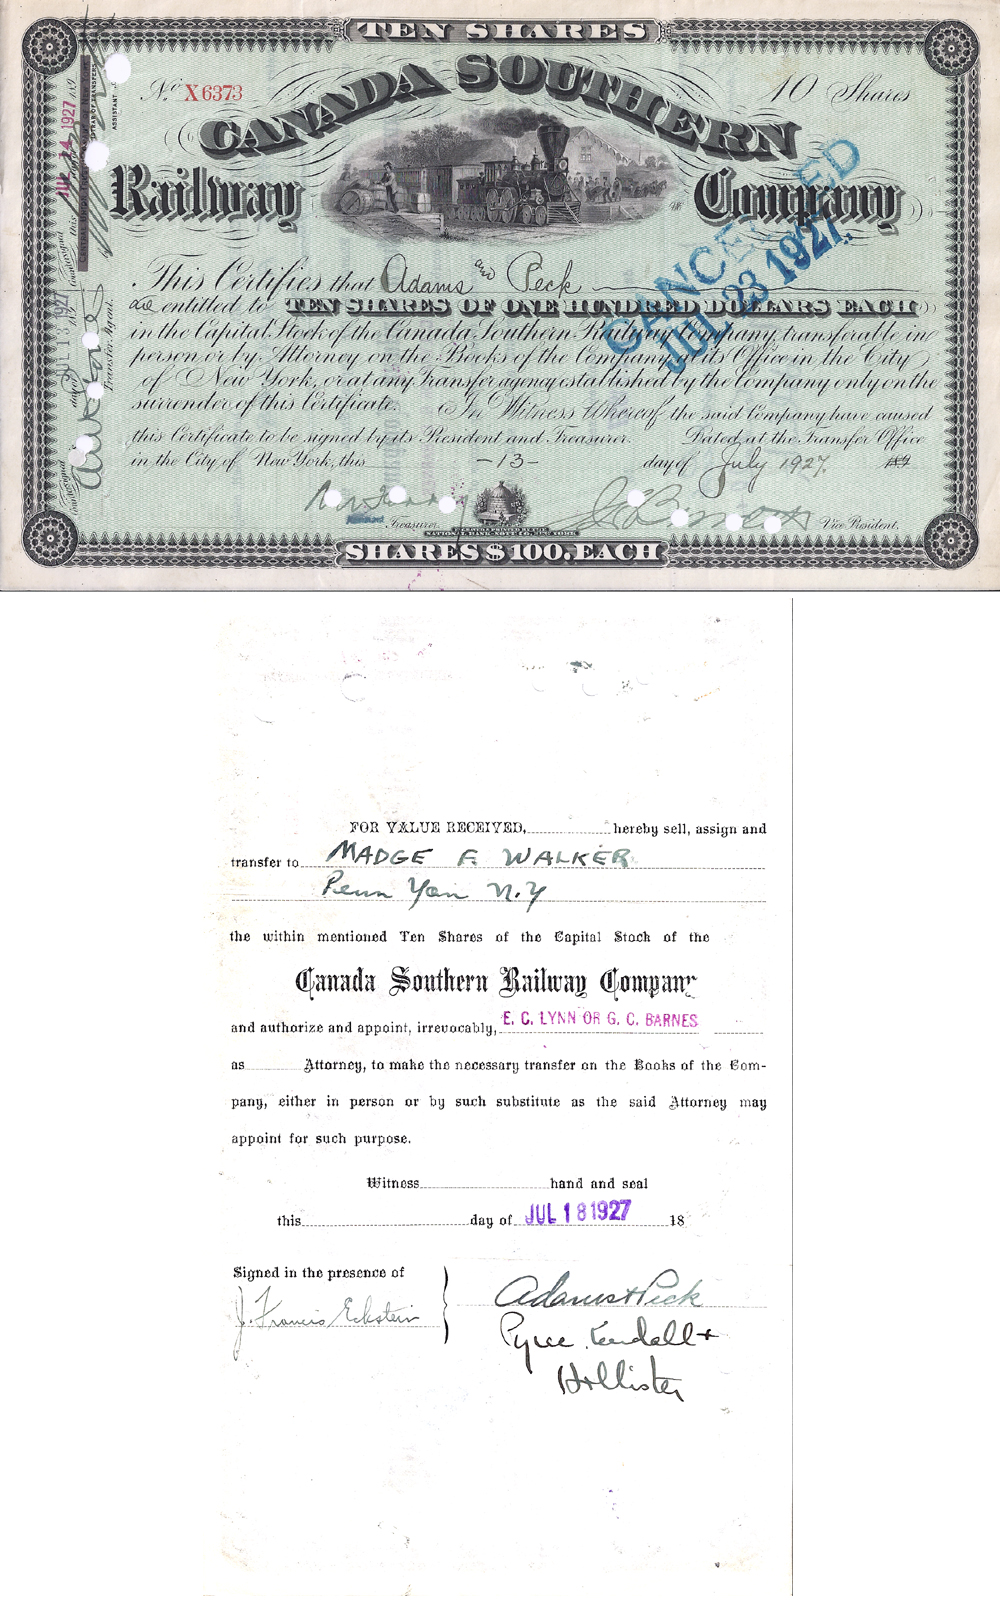 TEN SHARES
No X6373
10 Shares
CANADA SOUTHERN
Railway Company
CANCELLED
JUL 23 1927
This Certifies that Adams and Peck
are entitled to TEN SHARES OF ONE HUNDRED DOLLARS EACH
in the Capital Stock of the Canada Southern Railway Company, transferable in
person or by Attorney on the Books of the Company at its Office in the City
of New York, or at any Transfer agency established by the Company only on the
surrender of this Certificate. In Witness Whereof the said Company have caused
this Certificate to be signed by its President and Treasurer. Dated at the Transfer Office
in the City of New York, this -13- day of July 1927. 189
Treasurer.
Vice President.
SHARES $100, EACH
Countersigned
JUL 13 1927
day of
Transfer Agent.
Countersigned this
JUL 14 1927
189
FOR VALUE RECEIVED, hereby sell, assign and
transfer to MADGE F. WALKER
Penn Yan N.Y
the within mentioned Ten Shares of the Capital Stock of the
Canada Southern Railway Company
and authorize and appoint, irrevocably, E. C. LYNN OR G. C. BARNES
as Attorney, to make the necessary transfer on the Books of the Com-
pany, either in person or by such substitute as the said Attorney may
appoint for such purpose.
Witness hand and seal
this day of JUL 18 1927 18
Signed in the presence of
J. Francis Eckstein
Adams & Peck
Pyne, Kendall +
Hollister